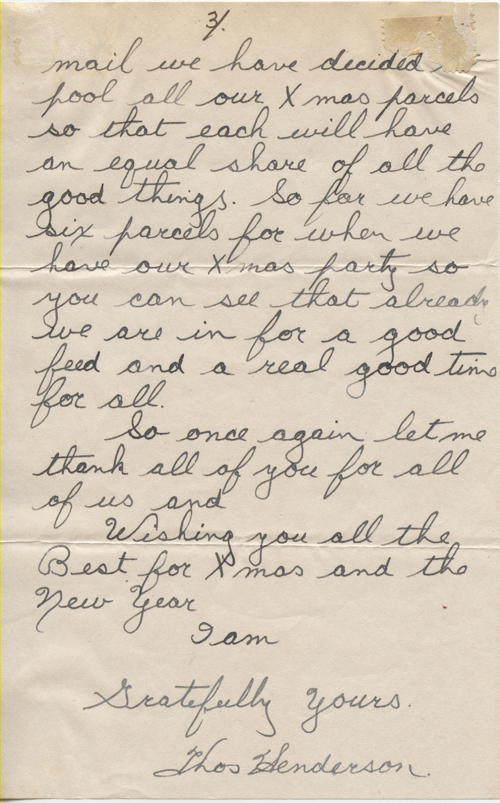 3/.
mail we have decided
pool all our Xmas parcels
so that each will have
an equal share of all the
good things. So far we have
six parcels for when we
have our Xmas party so
you can see that already
we are in for a good
feed and a real good time
for all.
So once again let me
thank all of you for all
of us and
Wishing you all the
Best for Xmas and the
New Year
I am
Gratefully Yours.
Thos Henderson.